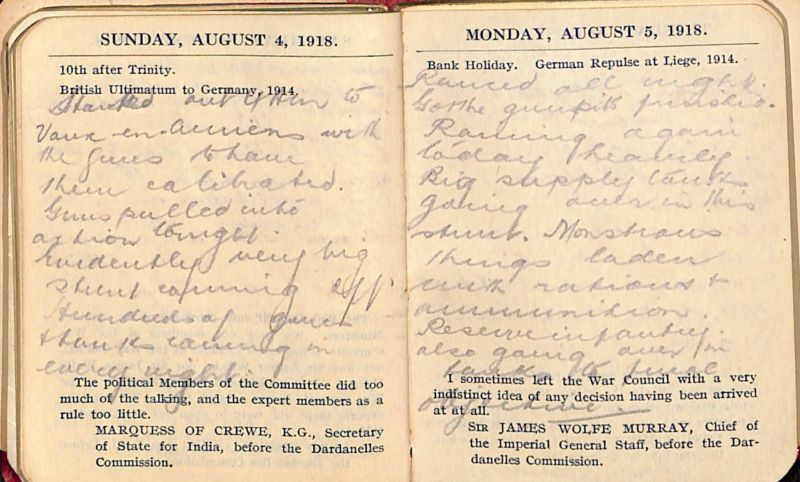 SUNDAY, AUGUST 4, 1918.
10th after Trinity.
British Ultimatum to Germany, 1914.
Started out to
Vaux-en-Amiens with
the guns to have
them calibrated.
Guns pulled into
action tonight.
Evidently very big
stunt coming off
Hundreds of guns
+ tanks coming in
every night.
The political Members of the Committee did too
much of the talking, and the expert members as a
rule too little.
MARQUESS OF CREWE, K.G., Secretary
of State for India, before the Dardanelles
Commission.
MONDAY, AUGUST 5, 1918.
Bank Holiday. German Repulse at Liege, 1914.
Rained all night.
Got the gunpits finished.
Raining again
today heavily.
Big supply tanks
going over in this
stunt. Monstrous
things laden
with rations +
ammunition.
Reserve infantry
also going over in
tanks to final
objective.
I sometimes left the War Council with a very
indistinct idea of any decision having been arrived
at at all.
SIR JAMES WOLFE MURRAY, Chief of
the Imperial General Staff, before the Dar-
danelles Commission.